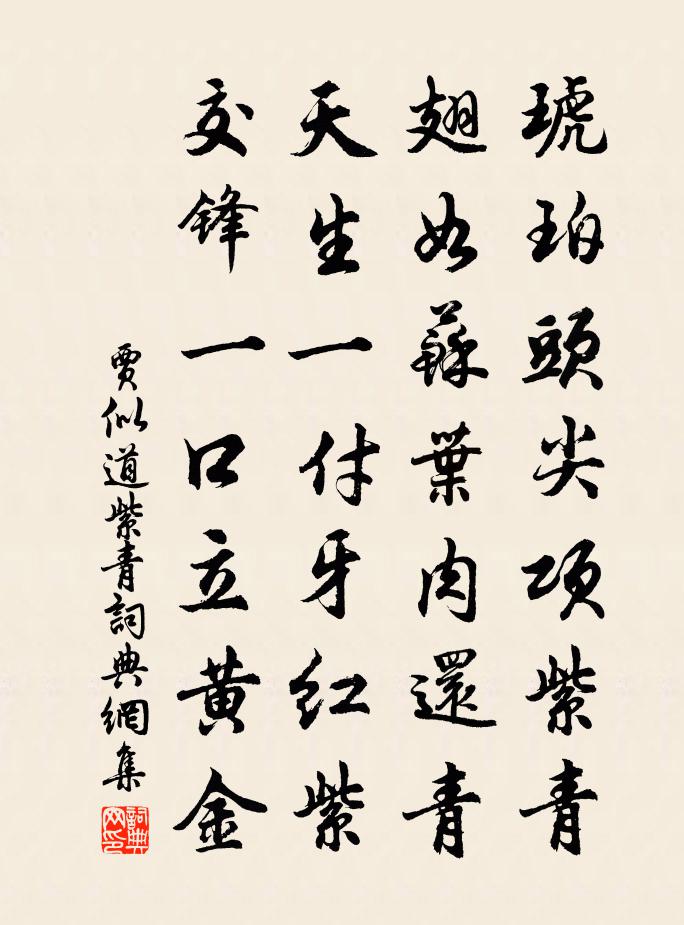 琥珀頭尖項紫青
翅如蘇葉肉還青
天生一付牙紅紫
交鋒一口立黃金
賈似道紫青詞典網集
詞典網印